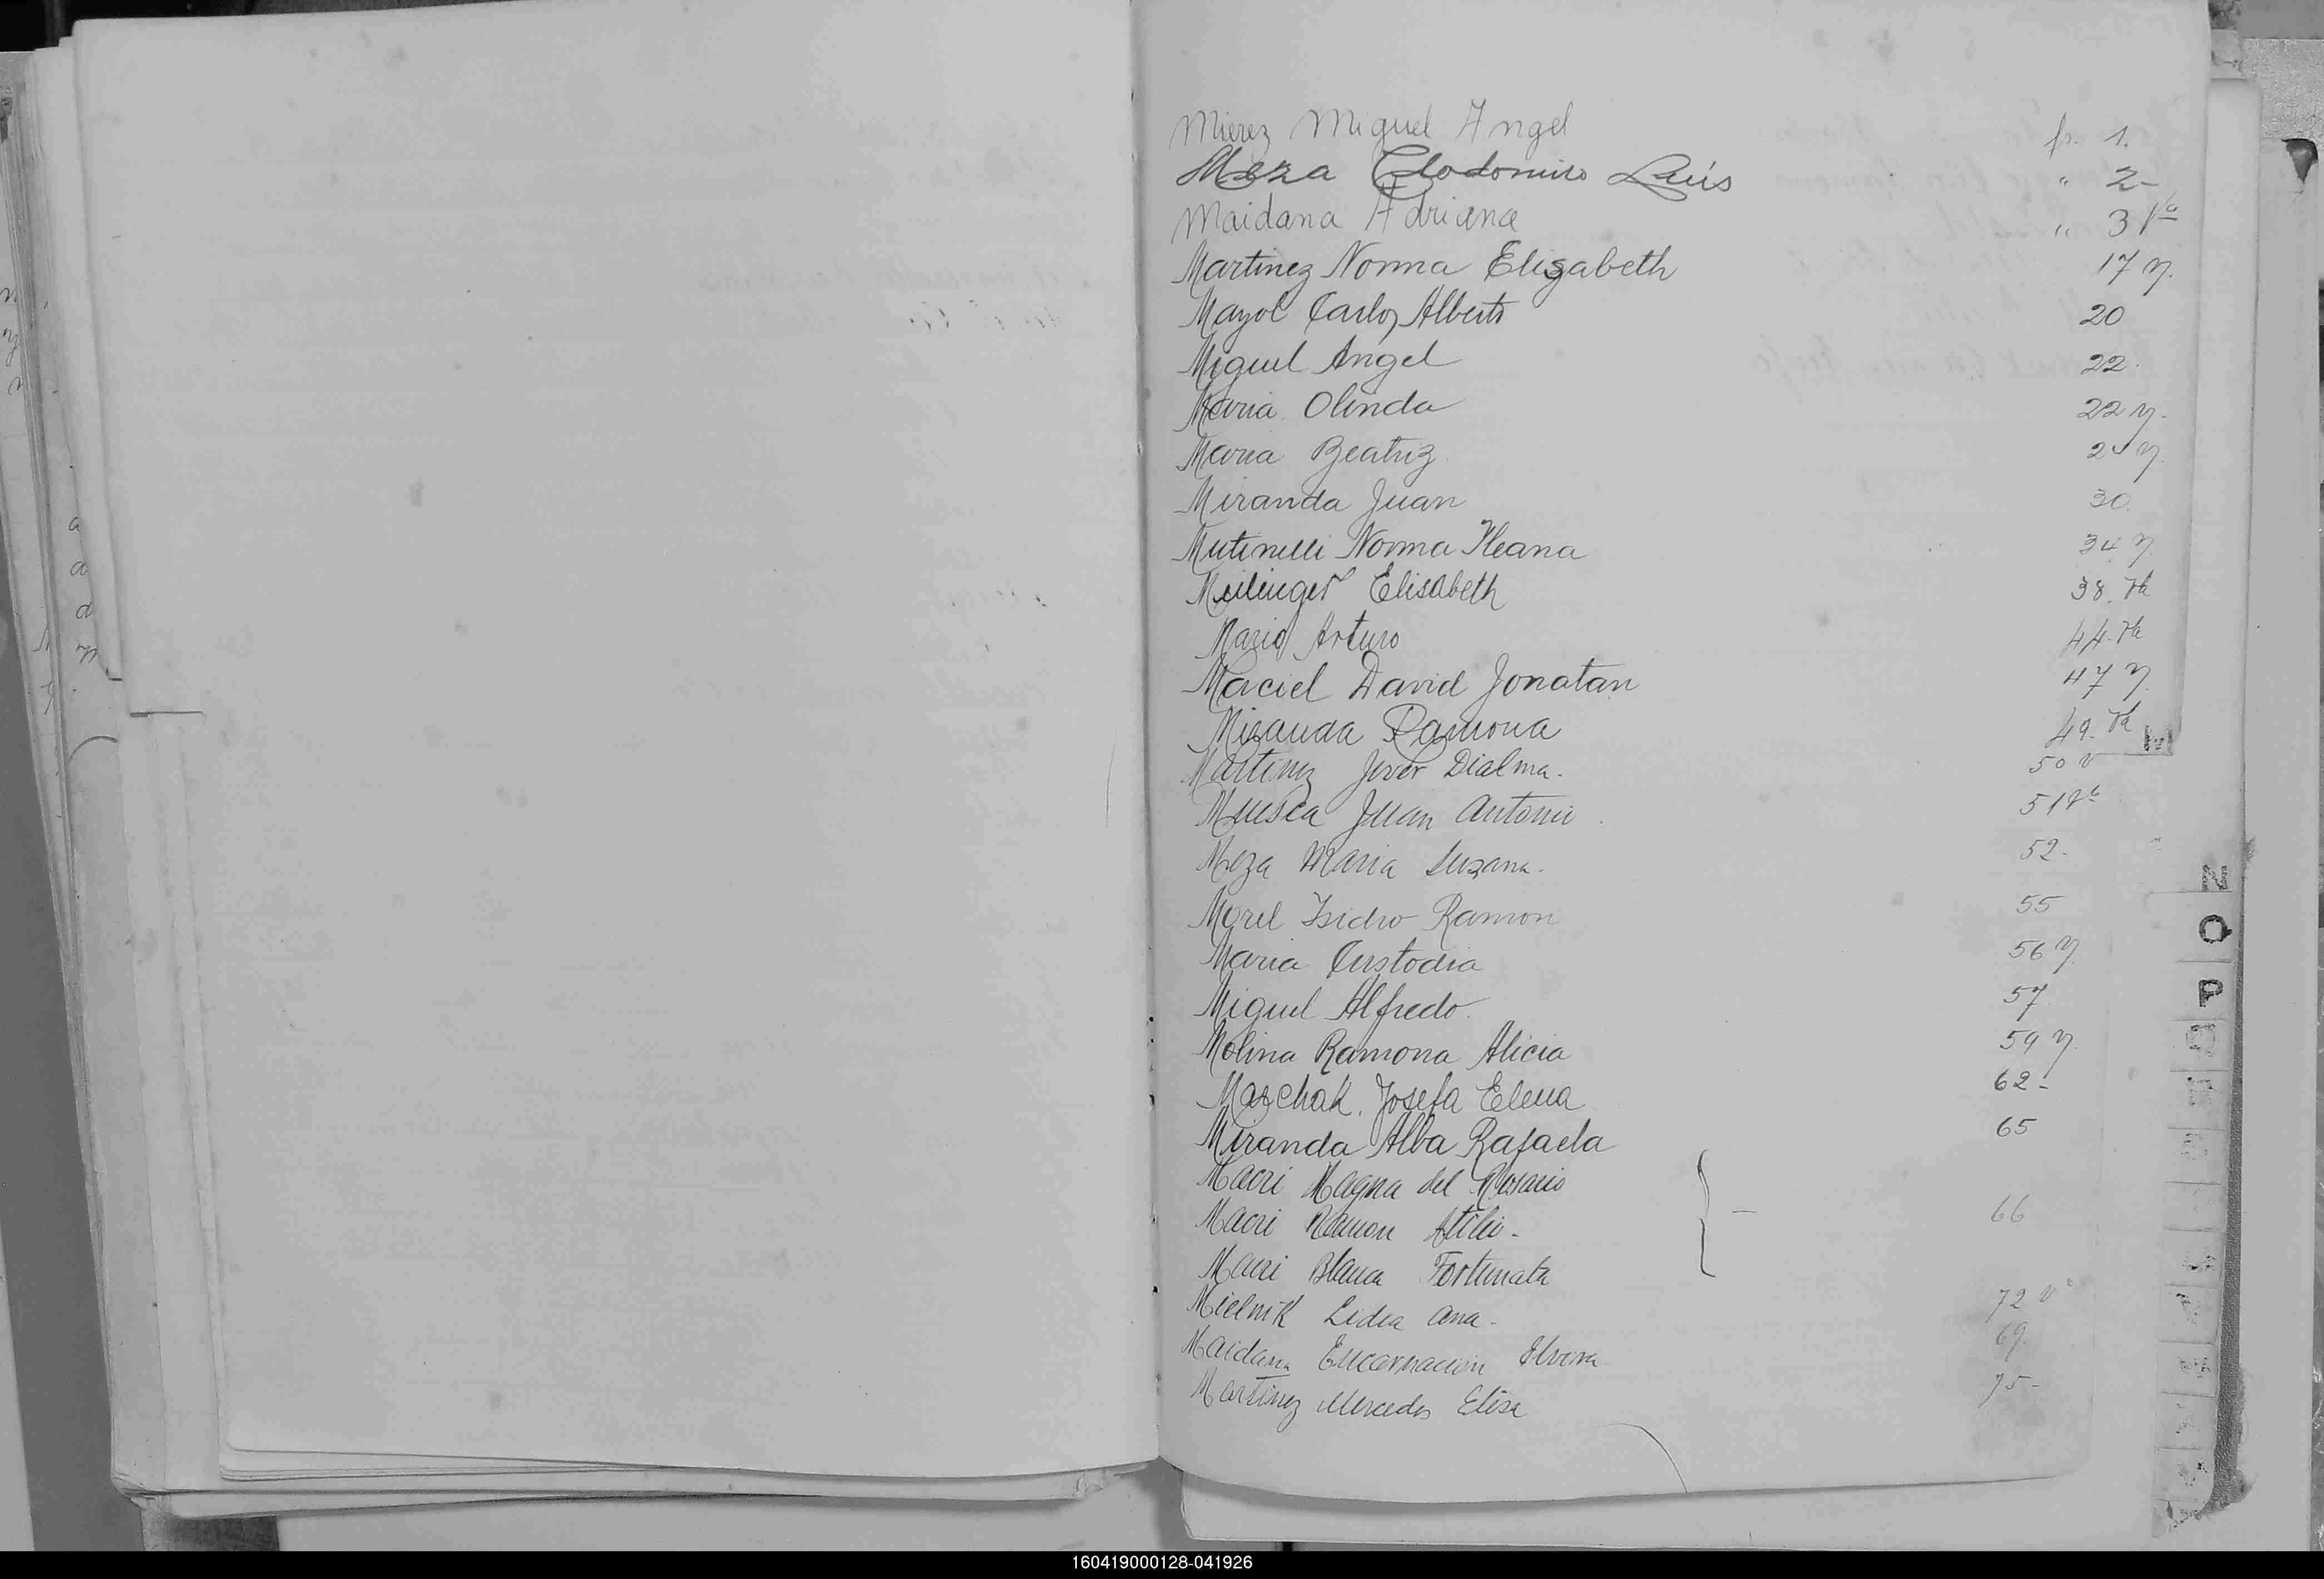 Mierez Miguel Angel fs. 1.
Meza Clodomiro Luis " 2-
Maidana Adriana " 3 Va
Martinez Norma Elisabeth 17 v.
Mayol Carlos Alberto 20
Miguel Angel 22.
Maria Olinda 22 v.
Maria Beatriz
Miranda Juan 30.
Mutinelli Norma Ileana 34 v.
Meilinger Elisabeth 38. Va
Mario Arturo 44. Va
Maciel David Jonatan 47 v.
Miranda Ramona 49. Va
Martinez Dialma. 50 v
Juan Antonio 51 va
Meza Maria Susana. 52-
Morel Isidro Ramon 55
Maria Custodia 56 v.
Miguel Alfredo. 57.
Molina Ramona Alicia 59 v.
Marchak. Josefa Elena 62-
Miranda Alba Rafaela 65
Macri Magna del Rosario
Macri Ramon Atilio- 66
Macri Blanca Fortunata
Mielnik Lidia Ana- 72 v
Maidana Encarnación 69.
Martinez Mercedes Elisa 75-
M
N
O
P
160419000128-041926